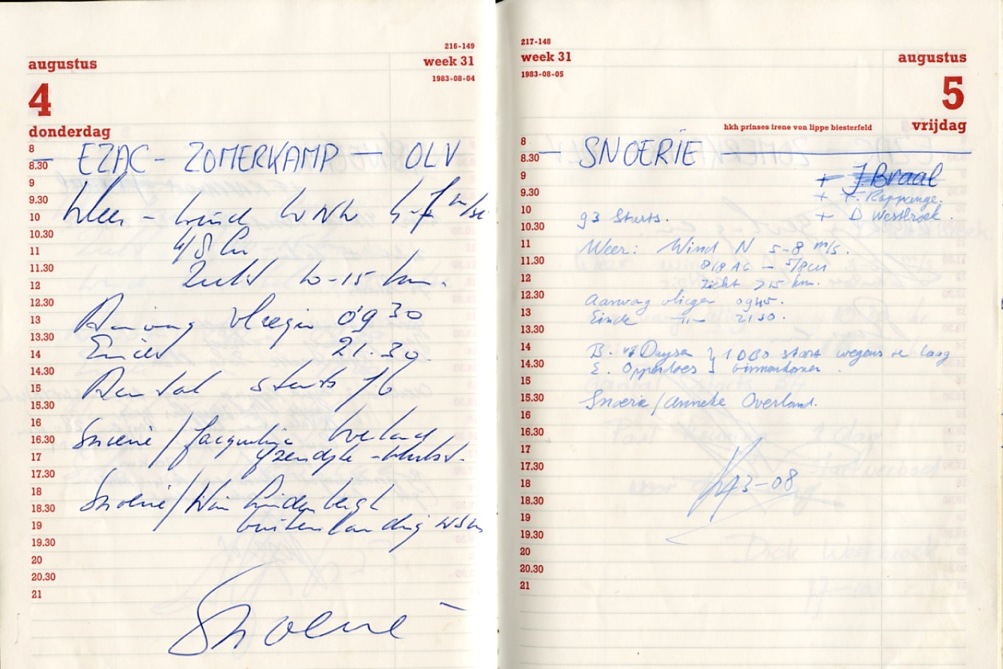 216-149
augustus
week 31
1983-08-04
4
donderdag
8
8.30
— EZAC - ZOMERKAMP — OLV
9
9.30
Weer - wind WNW 4-7 m/sec
10
10.30
4/8 Cu
11
11.30
Zicht 10-15 km.
12
12.30
Aanvang vliegen 09 30
13
13.30
Einde 21.30.
14
14.30
Aantal starts 76
15
15.30
16
Snoerie / Jacqueline overland
16.30
17
17.30
18
Snoerie / Wim
18.30
buitenlanding
19
19.30
20
20.30
21
Snoerie
217-148
week 31
augustus
1983-08-05
5
hkh prinses irene von lippe biesterfeld
vrijdag
8
8.30
— SNOERIE
9
+ J Braal
9.30
+ F. Rappange.
10
+ D Westbroek.
93 starts.
10.30
11
Weer: Wind N 5-8 m/s.
11.30
8/8 AC - 5/8 cu
12
zicht >15 km.
12.30
Aanvang vliegen 0945.
13
Einde -"- 2130.
13.30
14
B. vd Duyse } 1000 start wegens te laag
14.30
E. Opperloes } binnenkomen.
15
15.30
Snoerie / Anneke Overland.
16
16.30
17
17.30
18
18.30
19
19.30
20
20.30
21